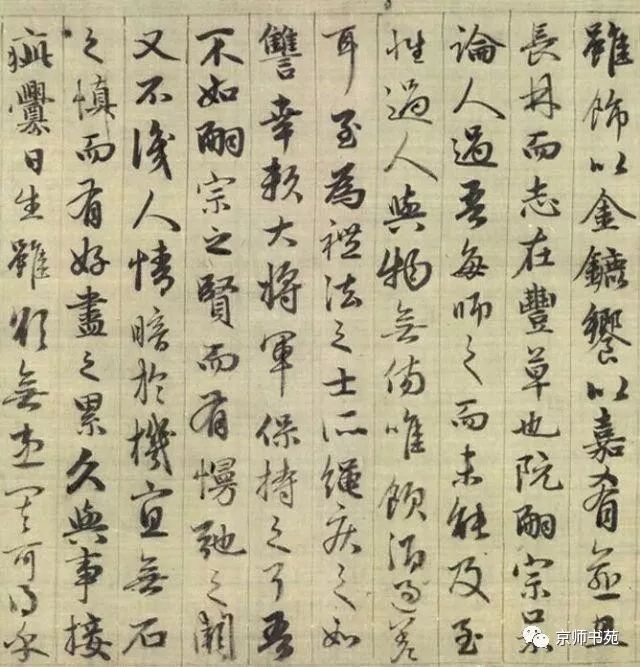 雖飾以金鑣饗以嘉肴逾思
長林而志在豐草也阮嗣宗口不
論人過吾每師之而未能及至
性過人與物無傷唯飲酒過差
耳至為禮法之士所繩疾之如
讐幸賴大將軍保持之耳吾
不如嗣宗之賢而有慢弛之闕
又不識人情暗於機宜無石
之慎而有好盡之累久與事接
疵釁日生雖欲無患其可得乎
京师书苑